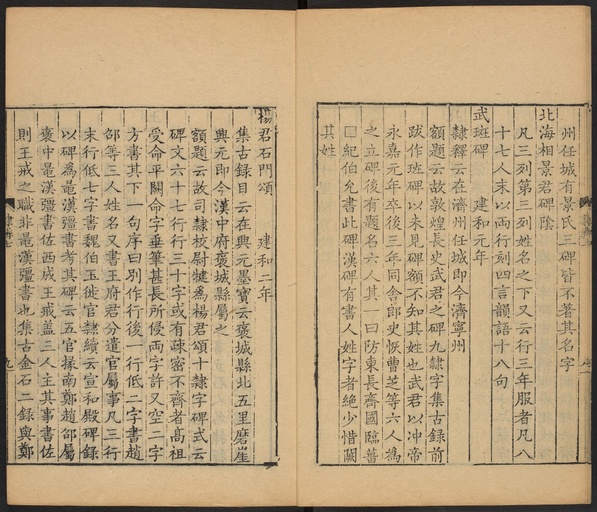 州任城有景氏三碑皆不著其名字
北海相景君碑陰
凡三列第三列姓名之下又云行三年服者凡八
十七人末以兩行刻四言韻語十八句
武班碑 建和元年
隸釋云在濟州任城即今濟寧州
額題云故敦煌長史武君之碑九隸字集古錄前
跋作班碑以未見碑額不知其姓也武君以冲帝
永嘉元年卒後三年同舍郎史恢曹芝等六人為
之立碑後有題名六人其一曰防東長齊國臨菑
□紀伯允書此碑漢碑有書人姓字者絶少惜闕
其姓
楊君石門頌 建和二年
集古錄目云在興元墨寶云褒城縣北五里磨崖
興元即今漢中府褒城縣屬之
額題云故司隸校尉犍為楊君頌十隸字碑式云
碑文六十七行行三十字或有疎密不齊者高祖
受命平闕命字垂筆甚長所侵兩字許又空二字
方書其下一句序曰別作行後一行低二字書趙
邵等三人姓名又書王府君分遣官屬事凡三行
末行低七字書魏伯玉徙官隸續云宣和殿碑錄
以碑為鼂漢彊書考其碑云五官掾南鄭趙邵屬
褒中鼂漢彊書佐西成王戒盖三人主其事書佐
則王戒之職非鼂漢彊書也集古金石二錄與鄭
隸辨 九